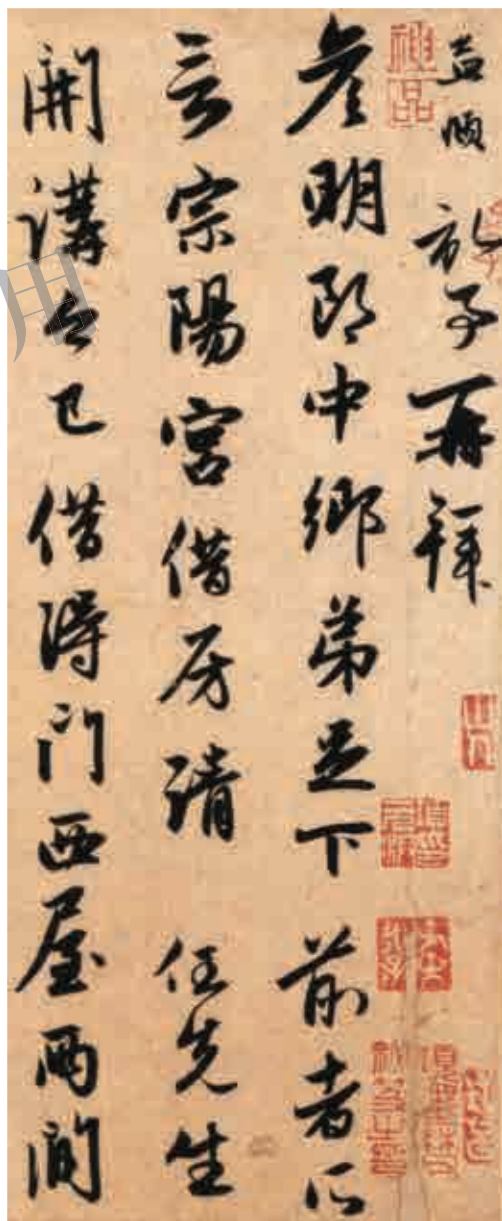 神品
孟頫頓首再拜
彦明郎中鄉弟足下 前者所
言宗陽宮借房請 任先生
開講今已借得門西屋兩間
用